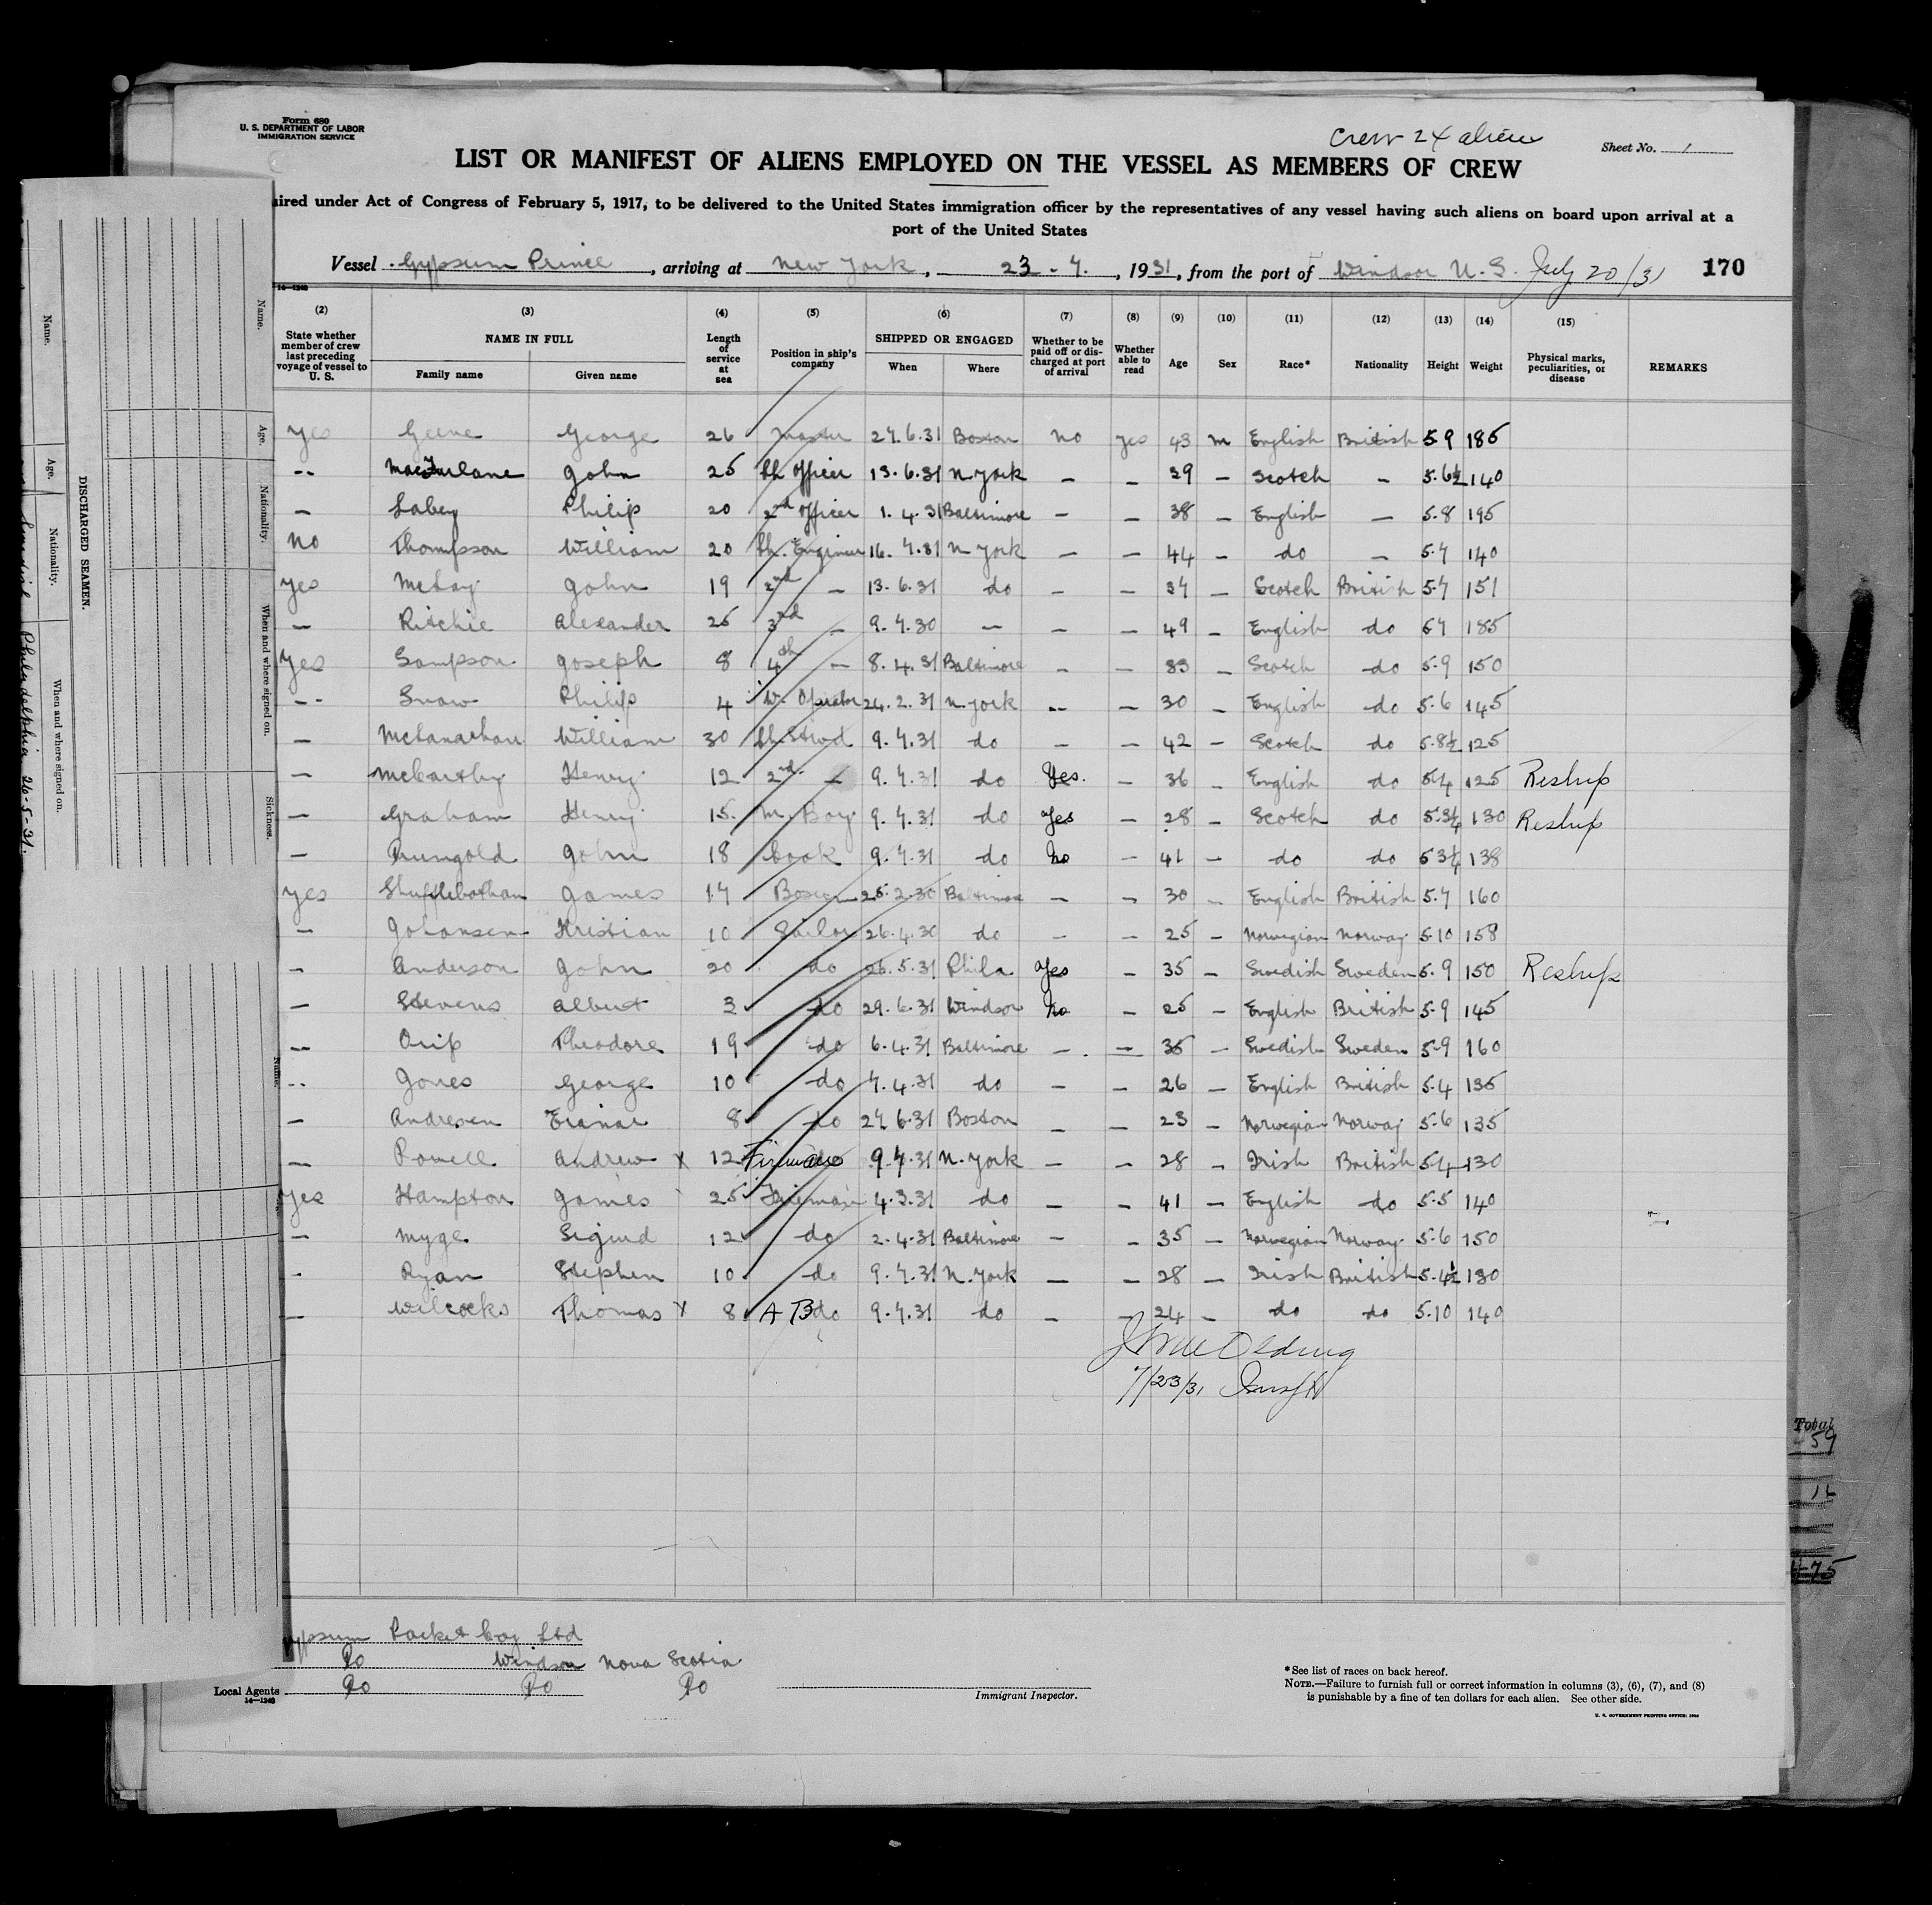 Form 680
U. S. DEPARTMENT OF LABOR
IMMIGRATION SERVICE
Crew 24 alien
Sheet No. 1
LIST OR MANIFEST OF ALIENS EMPLOYED ON THE VESSEL AS MEMBERS OF CREW
uired under Act of Congress of February 5, 1917, to be delivered to the United States immigration officer by the representatives of any vessel having such aliens on board upon arrival at a
port of the United States
Vessel Gypsum Prince, arriving at New York, 23-7., 1931, from the port of Windsor N.S. July 20/31 170
14-1240
(2) (3) (4) (5) (6) (7) (8) (9) (10) (11) (12) (13) (14) (15)
State whether member of crew last preceding voyage of vessel to U. S. NAME IN FULL Family name Given name Length of service at sea Position in ship's company SHIPPED OR ENGAGED When Where Whether to be paid off or discharged at port of arrival Whether able to read Age Sex Race* Nationality Height Weight Physical marks, peculiarities, or disease REMARKS
yes George 26 Master 27.6.31 Boston no yes 43 m English British 5.9 185
-- MacFarlane John 25 Ch Officer 13.6.31 N York - - 39 - Scotch - 5.6½ 140
- Labey Philip 20 2nd Officer 1.4.31 Baltimore - - 38 - English - 5.8 195
No Thompson William 20 Ch. Engineer 16.7.31 N York - - 44 - do - 5.7 140
yes McKay John 19 2nd - 13.6.31 do - - 37 - Scotch British 5.7 151
- Ritchie Alexander 25 3rd - 9.7.30 - - - 49 - English do 5 7 185
Yes Sampson Joseph 8 4th - 8.4.31 Baltimore - - 33 - Scotch do 5.9 150
-- Snow Philip 4 W. Operator 24.2.31 N. York -- - 30 - English do 5.6 145
- William 30 Ch. Stwd 9.7.31 do - - 42 - Scotch do 5.8½ 125
- McCarthy Henry 12 2nd - 9.7.31 do Yes. - 36 - English do 5.4 125 Reship
- Graham Henry 15. M. Boy 9.7.31 do Yes - 28 - Scotch do 130 Reship
- John 18 Cook 9.7.31 do No - 41 - do do 138
yes Shufflebotham James 17 Bosun 25.2.30 Baltimore - - 30 - English British 5.7 160
- Johansen Kristian 10 Sailor 26.4.30 do - - 25 - Norwegian Norway 5.10 158
- Anderson John 20 do 26.5.31 Phila Yes - 35 - Swedish Sweden 5.9 150 Reship
- Stevens Albert 3 do 29.6.31 Windsor No - 25 - English British 5.9 145
- Theodore 19 do 6.4.31 Baltimore - - 35 - Swedish Sweden 5.9 160
-- Jones George 10 do 7.4.31 do - - 26 - English British 5.4 135
- Andresen Einar 8 do 27 6.31 Boston - - 23 - Norwegian Norway 5.6 135
- Powell Andrew x 12 9.7.31 N. York - - 28 - Irish British 5.4 130
yes Hampton James 25 Fireman 4.3.31 do - - 41 - English do 5.5 140
- Myge Sigurd 12 do 2.4.31 Baltimore - - 35 - Norwegian Norway 5.6 150
- Ryan Stephen 10 do 9.7.31 N. York - - 28 - Irish British 5.4½ 130
- Wilcocks Thomas x 8 A B do 9.7.31 do - - 24 - do do 5.10 140
7/23/31
ypsum Packet Coy Ltd
Do Windsor Nova Scotia
Local Agents Do Do Do
14-1240
Immigrant Inspector.
*See list of races on back hereof.
NOTE.—Failure to furnish full or correct information in columns (3), (6), (7), and (8)
is punishable by a fine of ten dollars for each alien. See other side.
U. S. GOVERNMENT PRINTING OFFICE
DISCHARGED SEAMEN.
Name. Age. Nationality. When and where signed on.
Philadelphia 26-5-31.
Name. Age. Nationality. When and where signed on. Sickness.
Name.
Total